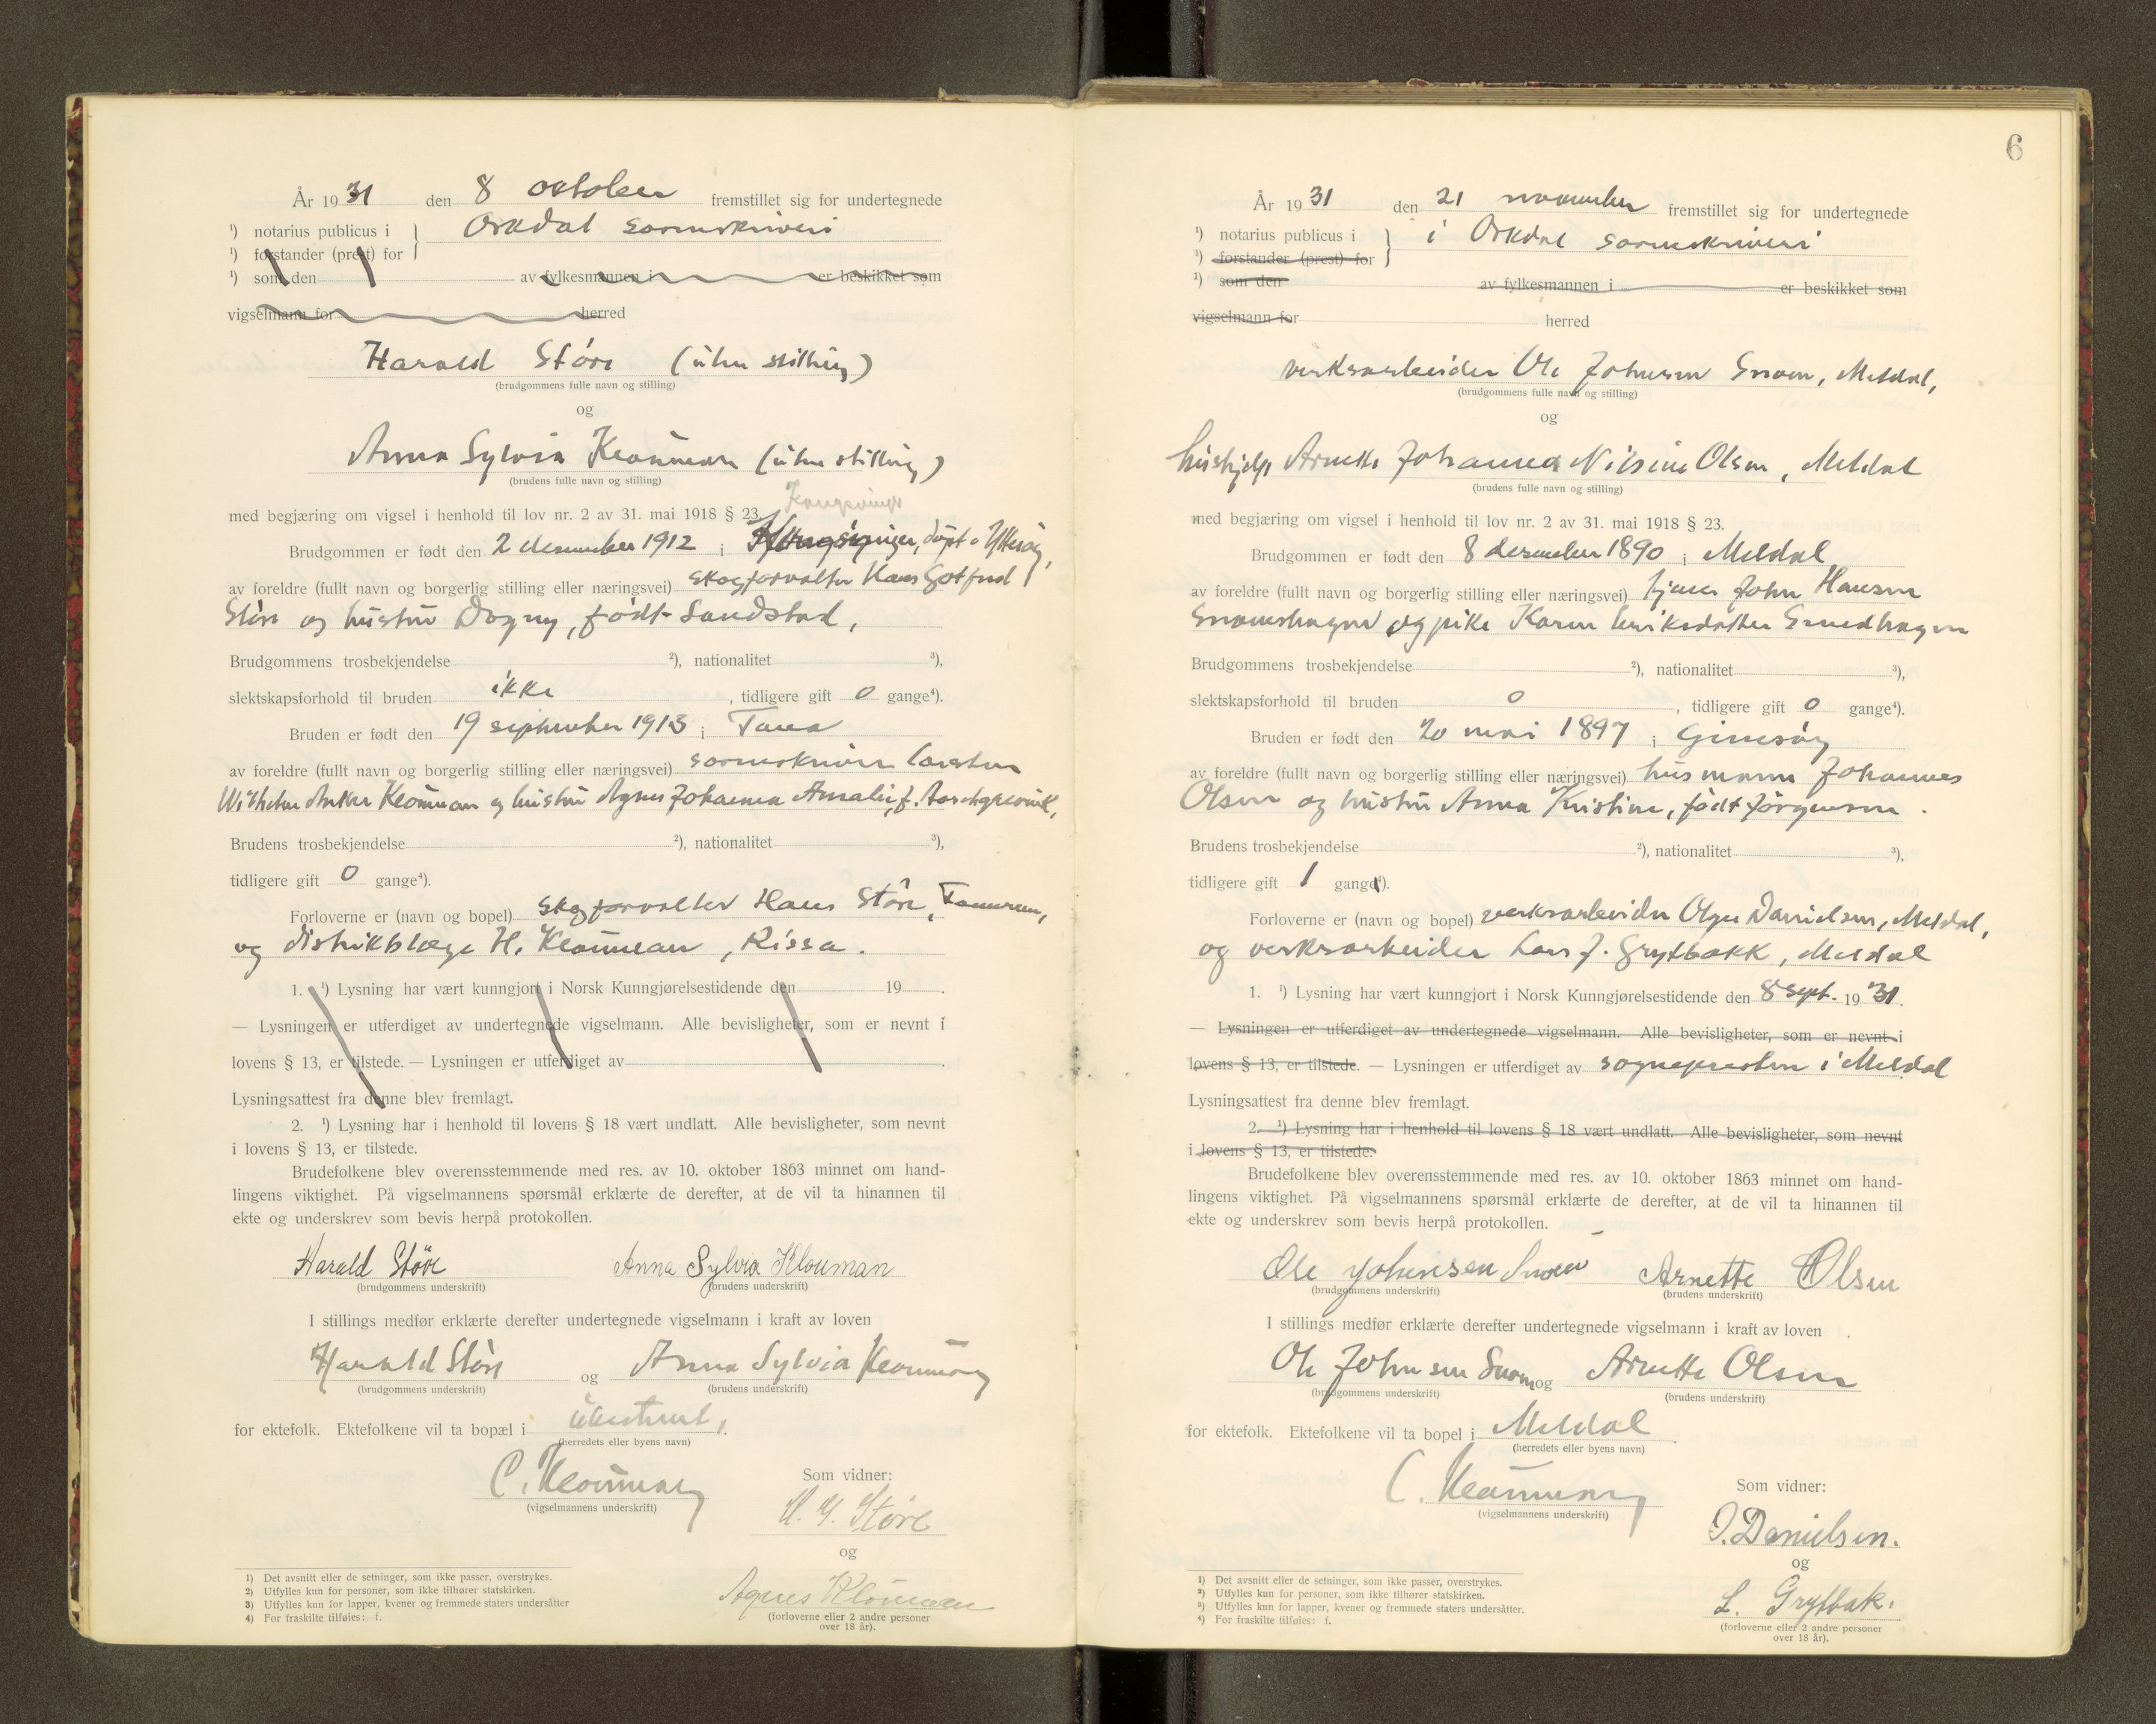 År 1931 den 8 oktober fremstillet sig for undertegnede
¹) notarius publicus i } Orkdal sorenskriveri
¹) forstander (prest) for
¹) som den av fylkesmannen i er beskikket som
vigselmann for herred
Harald Störe (uten stilling)
(brudgommens fulle navn og stilling)
og
Anna Sylvia Klouman (uten stilling)
(brudens fulle navn og stilling)
Kongsvinger
med begjæring om vigsel i henhold til lov nr. 2 av 31. mai 1918 § 23.
Brudgommen er født den 2 desember 1912 i Kongsvinger, döpt i Ytteröy,
av foreldre (fullt navn og borgerlig stilling eller næringsvei) skogforvalter Hans Gotfred
Störe og hustru Dagny, født Sandstad,
Brudgommens trosbekjendelse ²), nationalitet ³),
slektskapsforhold til bruden ikke, tidligere gift 0 gange⁴).
Bruden er født den 19 september 1913 i Tana
av foreldre (fullt navn og borgerlig stilling eller næringsvei) sorenskriver Carsten
Wilhelm Anker Klouman og hustru Agnes Johanna Amalie, f.
Brudens trosbekjendelse ²), nationalitet ³),
tidligere gift 0 gange⁴).
Forloverne er (navn og bopel) skogforvalter Hans Störe,
og distriktslæge H. Klouman, Rissa.
1. ¹) Lysning har vært kunngjort i Norsk Kunngjørelsestidende den 19 .
— Lysningen er utferdiget av undertegnede vigselmann. Alle bevisligheter, som er nevnt i
lovens § 13, er tilstede. — Lysningen er utferdiget av .
Lysningsattest fra denne blev fremlagt.
2. ¹) Lysning har i henhold til lovens § 18 vært undlatt. Alle bevisligheter, som nevnt
i lovens § 13, er tilstede.
Brudefolkene blev overensstemmende med res. av 10. oktober 1863 minnet om hand-
lingens viktighet. På vigselmannens spørsmål erklærte de derefter, at de vil ta hinannen til
ekte og underskrev som bevis herpå protokollen.
Harald Störe Anna Sylvia Klouman
(brudgommens underskrift) (brudens underskrift)
I stillings medfør erklærte derefter undertegnede vigselmann i kraft av loven
Harald Störe og Anna Sylvia Klouman
(brudgommens underskrift) (brudens underskrift)
for ektefolk. Ektefolkene vil ta bopæl i ubestemt.
(herredets eller byens navn)
C. Klouman
(vigselmannens underskrift)
Som vidner:
H. G. Störe
og
Agnes Klouman
(forloverne eller 2 andre personer
over 18 år).
1) Det avsnitt eller de setninger, som ikke passer, overstrykes.
2) Utfylles kun for personer, som ikke tilhører statskirken.
3) Utfylles kun for lapper, kvener og fremmede staters undersåtter
4) For fraskilte tilføies: f.
6
År 1931 den 21 november fremstillet sig for undertegnede
¹) notarius publicus i } i Orkdal sorenskriveri
¹) forstander (prest) for
¹) som den av fylkesmannen i er beskikket som
vigselmann for herred
verksarbeider Ole Johnsen Snoen, Meldal,
(brudgommens fulle navn og stilling)
og
hushjelp Arnette Johanna Nilsine Olsen, Meldal
(brudens fulle navn og stilling)
med begjæring om vigsel i henhold til lov nr. 2 av 31. mai 1918 § 23.
Brudgommen er født den 8 desember 1890 i Meldal
av foreldre (fullt navn og borgerlig stilling eller næringsvei) tjener John Hansen
Snoenshagen og pike Karen Eriksdatter
Brudgommens trosbekjendelse ²), nationalitet ³),
slektskapsforhold til bruden 0, tidligere gift 0 gange⁴).
Bruden er født den 20 mai 1897 i Gimsöy
av foreldre (fullt navn og borgerlig stilling eller næringsvei) husmann Johannes
Olsen og hustru Anna Kristine, født Jörgensen.
Brudens trosbekjendelse ²), nationalitet ³),
tidligere gift 1 gang⁴).
Forloverne er (navn og bopel) verksarbeider Danielsen, Meldal,
og verksarbeider Lars J. Grytbakk, Meldal
1. ¹) Lysning har vært kunngjort i Norsk Kunngjørelsestidende den 8 sept. 1931.
— Lysningen er utferdiget av undertegnede vigselmann. Alle bevisligheter, som er nevnt i
lovens § 13, er tilstede. — Lysningen er utferdiget av sognepresten i Meldal
Lysningsattest fra denne blev fremlagt.
2. ¹) Lysning har i henhold til lovens § 18 vært undlatt. Alle bevisligheter, som nevnt
i lovens § 13, er tilstede.
Brudefolkene blev overensstemmende med res. av 10. oktober 1863 minnet om hand-
lingens viktighet. På vigselmannens spørsmål erklærte de derefter, at de vil ta hinannen til
ekte og underskrev som bevis herpå protokollen.
Ole Johnsen Snoen Arnette Olsen
(brudgommens underskrift) (brudens underskrift)
I stillings medfør erklærte derefter undertegnede vigselmann i kraft av loven
Ole Johnsen Snoen og Arnette Olsen
(brudgommens underskrift) (brudens underskrift)
for ektefolk. Ektefolkene vil ta bopel i Meldal
(herredets eller byens navn)
C. Klouman
(vigselmannens underskrift)
Som vidner:
O. Danielsen.
og
L. Grytbak.
(forloverne eller 2 andre personer
over 18 år).
¹) Det avsnitt eller de setninger, som ikke passer, overstrykes.
²) Utfylles kun for personer, som ikke tilhører statskirken.
³) Utfylles kun for lapper, kvener og fremmede staters undersåtter.
⁴) For fraskilte tilføies: f.